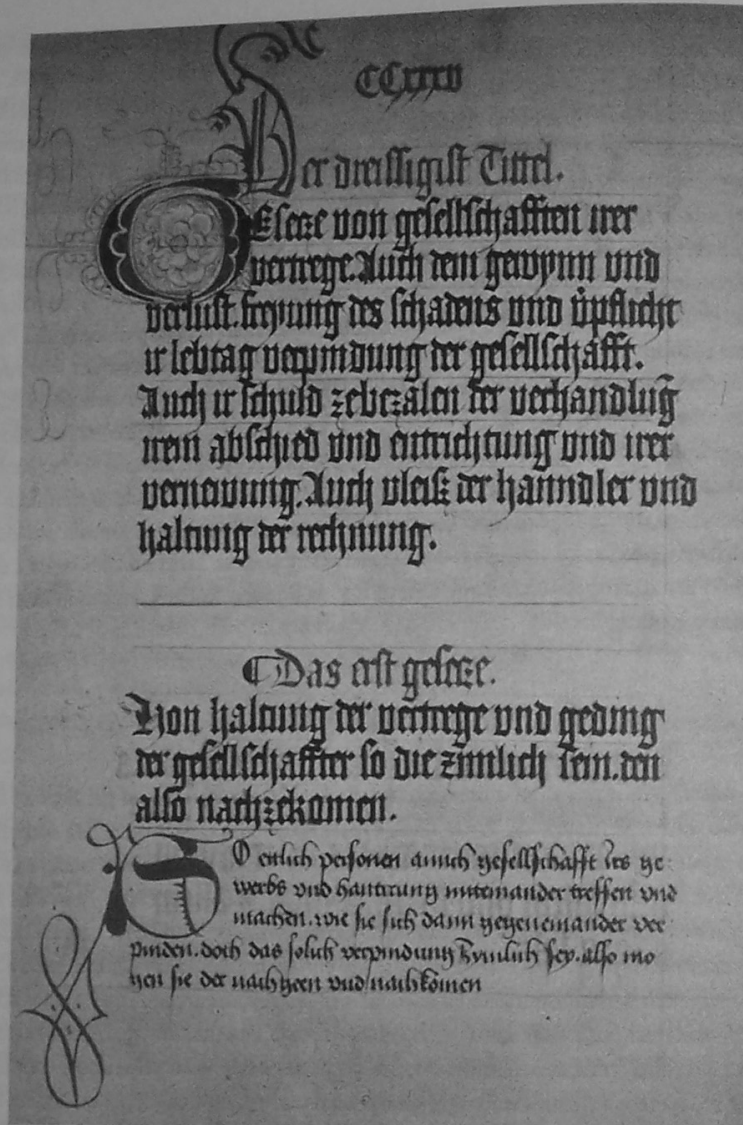 CCxxxv
Der dreissigist Tittel.
GEsecze von gesellschafften irer
vertrege. Auch dem gewynn vnd
verlust. freyung des schadens vnd v̈pflicht
ir lebtag verpindung der gesellschafft.
Auch ir schuld zebezalen der verhandlūg
irem abschied vnd entrichtung vnd irer
vernewung. Auch vleiß der hanndler vnd
haltung der rechnung.
¶ Das erst gesecze.
Von haltung der vertrege vnd geding
der gesellschaffter so die zimlich sein. den
also nachzekomen.
SO etlich personen ainich gesellschafft irs ge
werbs vnd hantirung miteinander treffen vnd
machen. wie sie sich dann gegeneinander ver
pinden. doch das solich verpindung zymlich sey. also mo
gen sie der nachgeen vnd nachkomen